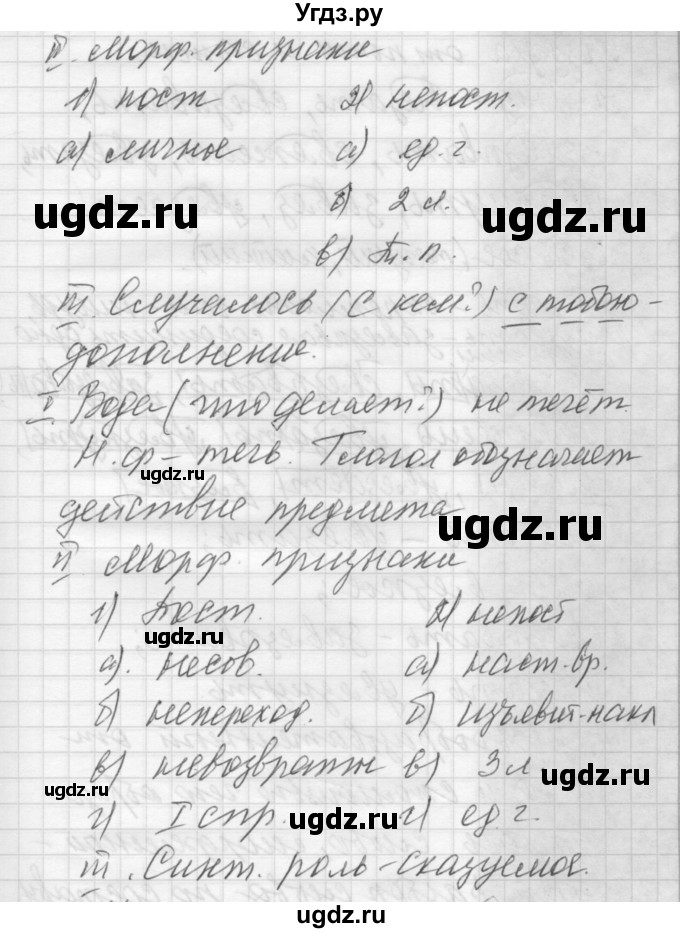 Угдз.ру
II. Морф. признаки
1) пост 2) непост.
а) личное а) ед. ч.
ugdz.ru б) 2 л. ugdz.ru
в) Т. п.
III. Случалось (с кем?) с тобою -
дополнение.
I Вода (что делает?) не течёт.
Н. ф - течь. Глагол обозначает
ugdz.ru
действие предмета
ugdz.ru
II Морф. признаки
1) Пост. 2) непост
ugdz.ru
а. несов. а) наст. вр.
б) непереход. б) изъявит. накл
в) невозвратн в) 3 л
ugdz.ru
ugdz.ru
г) I спр. г) ед. ч.
ugdz.ru
III. Синт. роль - сказуемое.
ugdz.ru